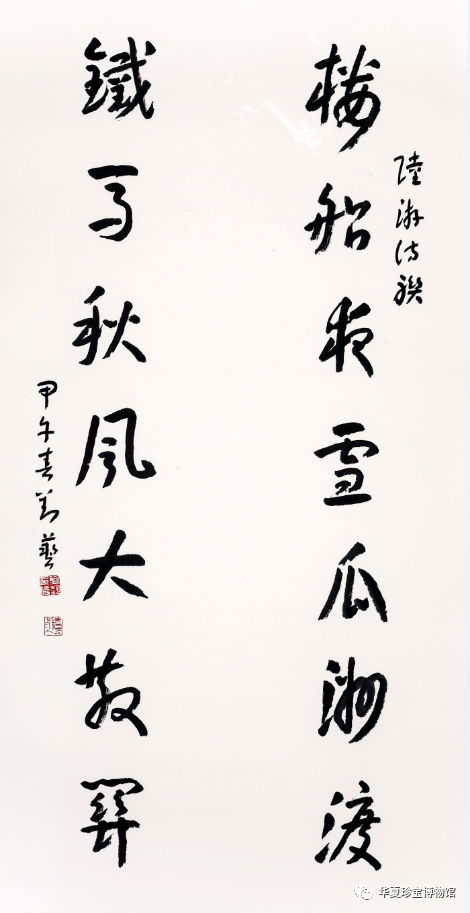 陸游詩聯
樓船夜雪瓜洲渡
鐵馬秋風大散關
甲午春刘藝
华夏珍宝博物馆